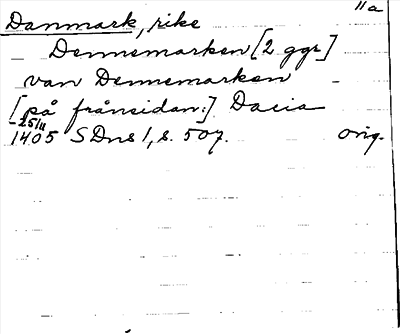 11a
Danmark, rike
Dennemarken [2 ggr]
van Dennemarken
[på frånsidan:] Dacia
-25/11
1405 SDns 1, s. 507. orig.